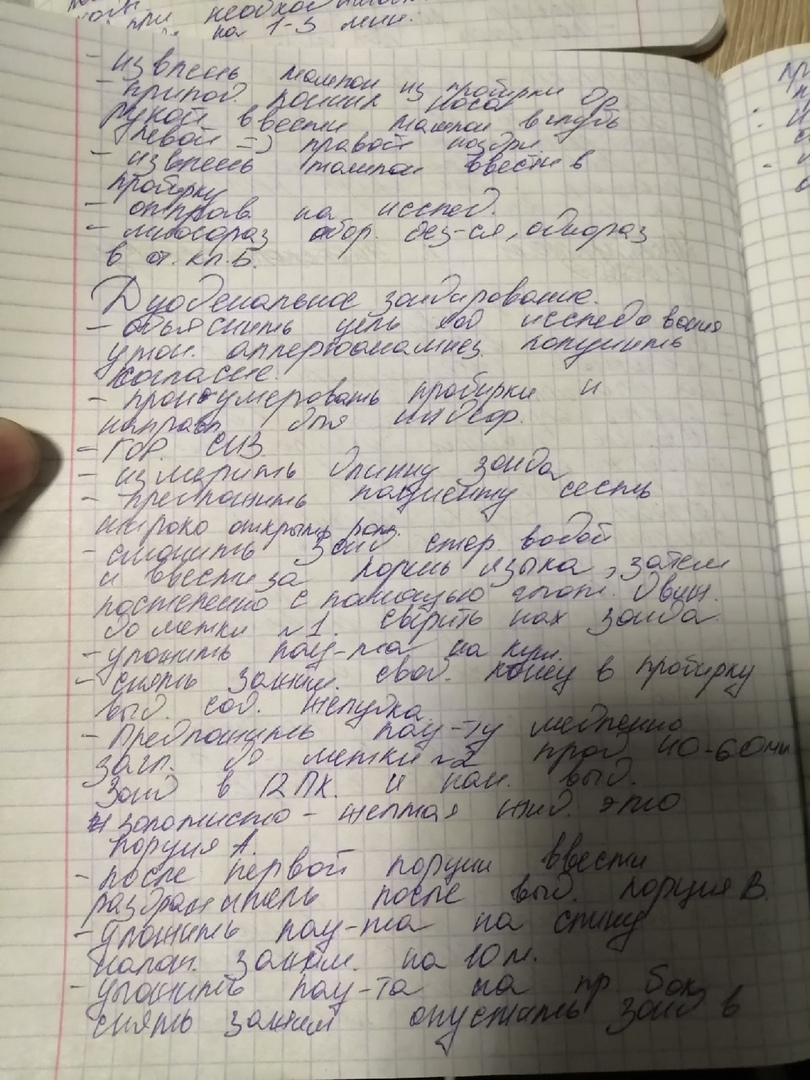 при необход
на 1-3 мин.
- извлечь тампон из пробирки
- припод. кончик носа Др.
рукой ввести тампон вглубь
левой => правой ноздри.
- извлечь тампон ввести в
пробирку
- отправ. на исслед.
- многораз обор. без-ся, однораз
в от. кл. Б.
Дуоденальное зондирование.
- объяснить цель ход исследования
уточ. аллергоанамнез получить
согласие.
- пронумеровать пробирки и
направ для лабор.
- ГОР. СИЗ
- измерить длинну зонда
- предложить пациенту сесть
широко открыть рот.
- смочить зонд стер водой
и ввести за корень языка, затем
постепенно с помощью глот. движ.
до метки №1. сверить нах зонда
- уложить пац-та на куш.
- снять зажим. своб. конец в пробирку
выд. сод. желудка
- Предложить пац-ту медленно
загл. до метки №2 прод 40-60 мин
Зонд в 12 ПК. и нач. выд.
золотисто - желтая жид. это
порция А.
- после первой порции ввести
раздражитель после выд. порция В.
- уложить пац-та на спину
налож. зажим. на 10 м.
- уложить пац-та на пр бок
снять зажим опустить зонд в